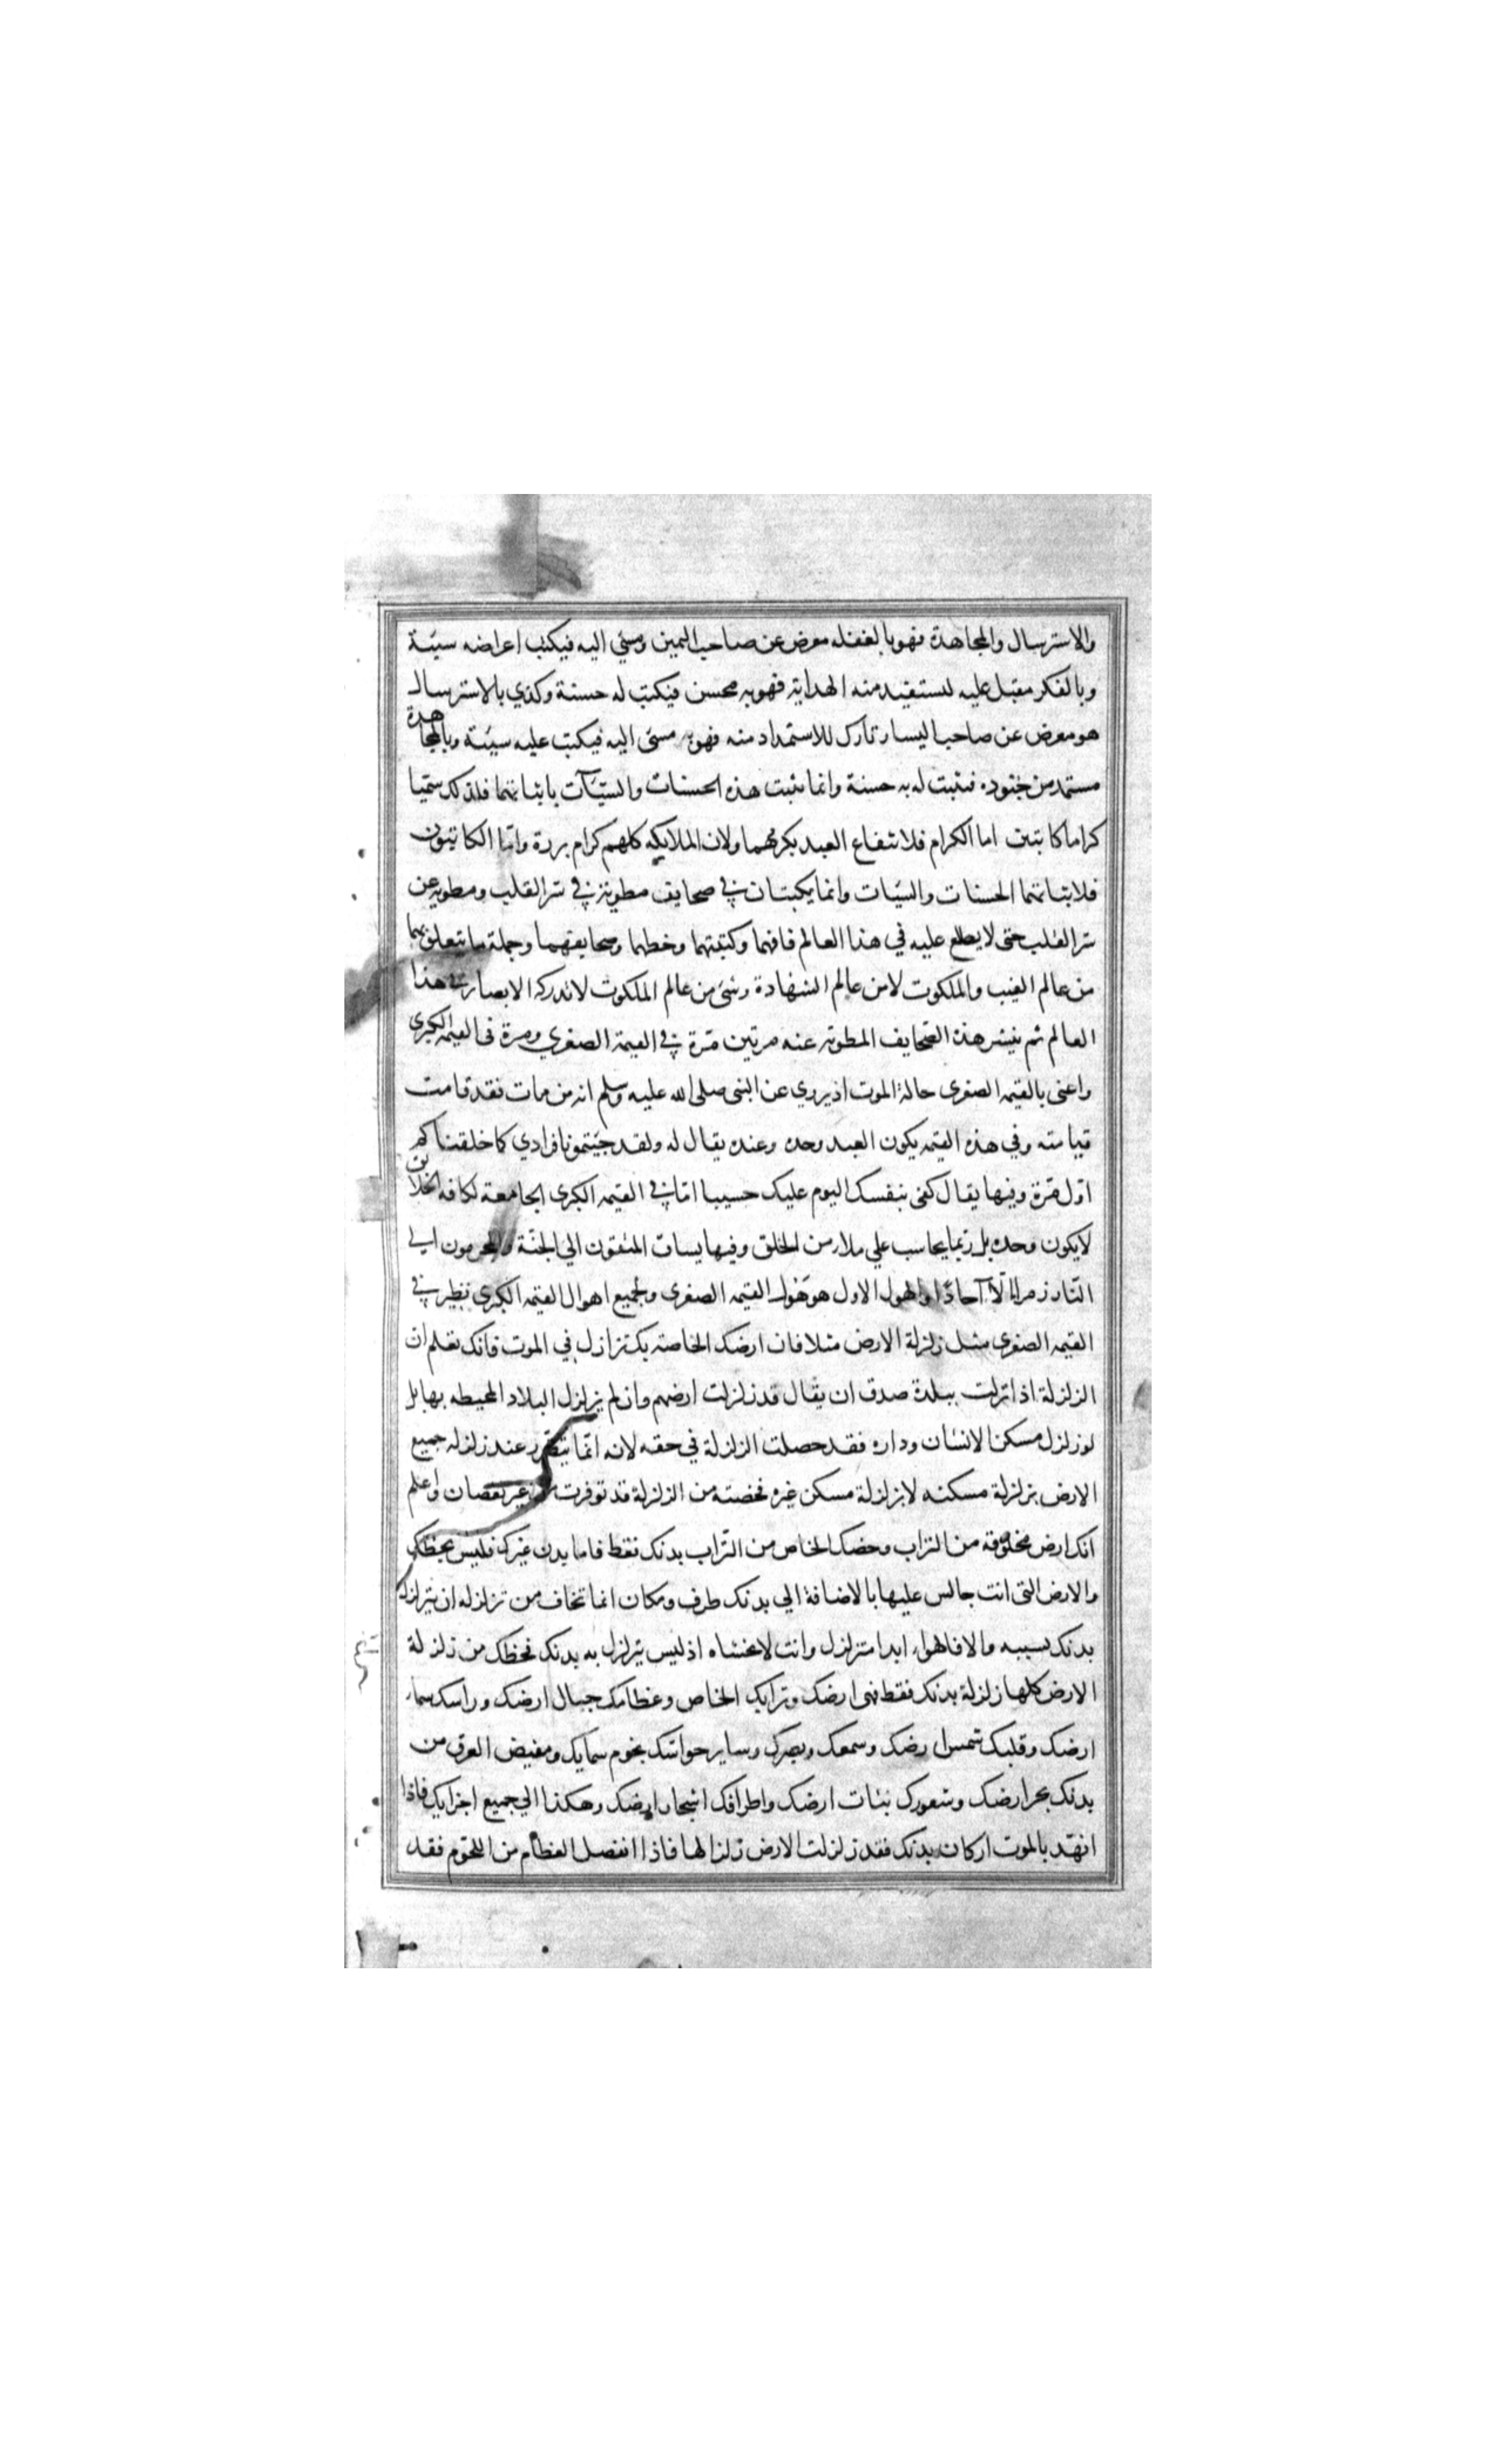 والاسترسال والمجاهدة فهو بالغفله معرض عن صاحب اليمين ومسئ اليه فيكتب اعراضه سيئة
وبالفكر مقبل عليه لستفيد منه الهداية فهو به محسن فيكتب له حسنة وكذي بالاسترسال
هو معرض عن صاحب اليسار تارك للاستمداد منه فهو به مسئ اليه فيكتب عليه سيئة وبالمجاهدة
مستمد من جنوده فيثبت له به حسنة وانما يثبت هذه الحسنات والسيّآت باثباتهما فلذلك سمّيا
كراما كاتبين اما الكرام فلانتفاع العبد بكرمهما ولان الملايكه كلهم كرام بررة وامّا الكاتبون
فلاثباتهما الحسنات والسّيات وانما يكتبان في صحايف مطوية في سرّ القلب ومطوية عن
سرّ القلب حتى لا يطلع عليه في هذا العالم فانهما وكتبتهما وخطهما وصحايفهما وجملة ما يتعلق بهما
من عالم الغيب والملكوت لا من عالم الشهادة وشئ من عالم الملكوت لا تدركه الابصار في هذا
العالم ثم ينشر هذه الصّحايف المطوية عنه مرتين مرّة في القيمة الصغرى ومرة فى القيمه الكبرى
واعنى بالقيمه الصغرى حالة الموت اذ يروي عن النبى صلى الله عليه وسلم انه من مات فقد قامت
قيامته وفي هذه القيمه يكون العبد وحده وعنده يقال له ولقد جئتمونا فرادي كما خلقناكم
اوّل مرّة وفيها يقال كفى بنفسك اليوم عليك حسيبا امّا في القيمه الكبرى الجامعة لكافه الخلائق
لا يكون وحده بل ربّما يحاسب علي ملاء من الخلق وفيها يساق المتقون الي الجنّة والمجرمون الي
النّار زمرا لا آحادًا والهول الاول هو هول القيمه الصغرى ولجميع اهوال القيمه الكبرى نظير في
القيمه الصغرى مثل زلزلة الارض مثلا فان ارضك الخاصه بك تزلزل في الموت فانك تعلم ان
الزلزلة اذا نزلت ببلدة صدق ان يقال قد زلزلت ارضهم وان لم يزلزل البلاد المحيطه بها بل
لو زلزل مسكن الانسان وداره فقد حصلت الزلزلة في حقه لانه انّما يتضرر عند زلزله جميع
الارض بزلزلة مسكنه لا بزلزلة مسكن غيره فحصته من الزلزلة قد توفرت من غير نقصان واعلم
انك ارض مخلوقة من التراب وحضك الخاص من التّراب بدنك فقط فاما بدن غيرك فليس بحظك
والارض التى انت جالس عليها بالاضافة الي بدنك ظرف ومكان انما تخاف من تزلزله ان يتزلزل
بدنك بسببه والا فالهواء ابدا متزلزل وانت لا تخشاه اذ ليس يتزلزل به بدنك فحظك من زلزلة
الارض كلها زلزلة بدنك فقط فهى ارضك وترابك الخاص وعظامك جبال ارضك وراسك سماء
ارضك وقلبك شمس ارضك وسمعك وبصرك وساير حواسّك نجوم سمايك ومفيض العرق من
بدنك بحر ارضك وشعورك نبات ارضك واطرافك اشجار ارضك وهكذا الي جميع اجزايك فاذا
انهدّ بالموت اركان بدنك فقد زلزلت الارض زلزالها فاذا انفصل العظام من اللحوم فقد